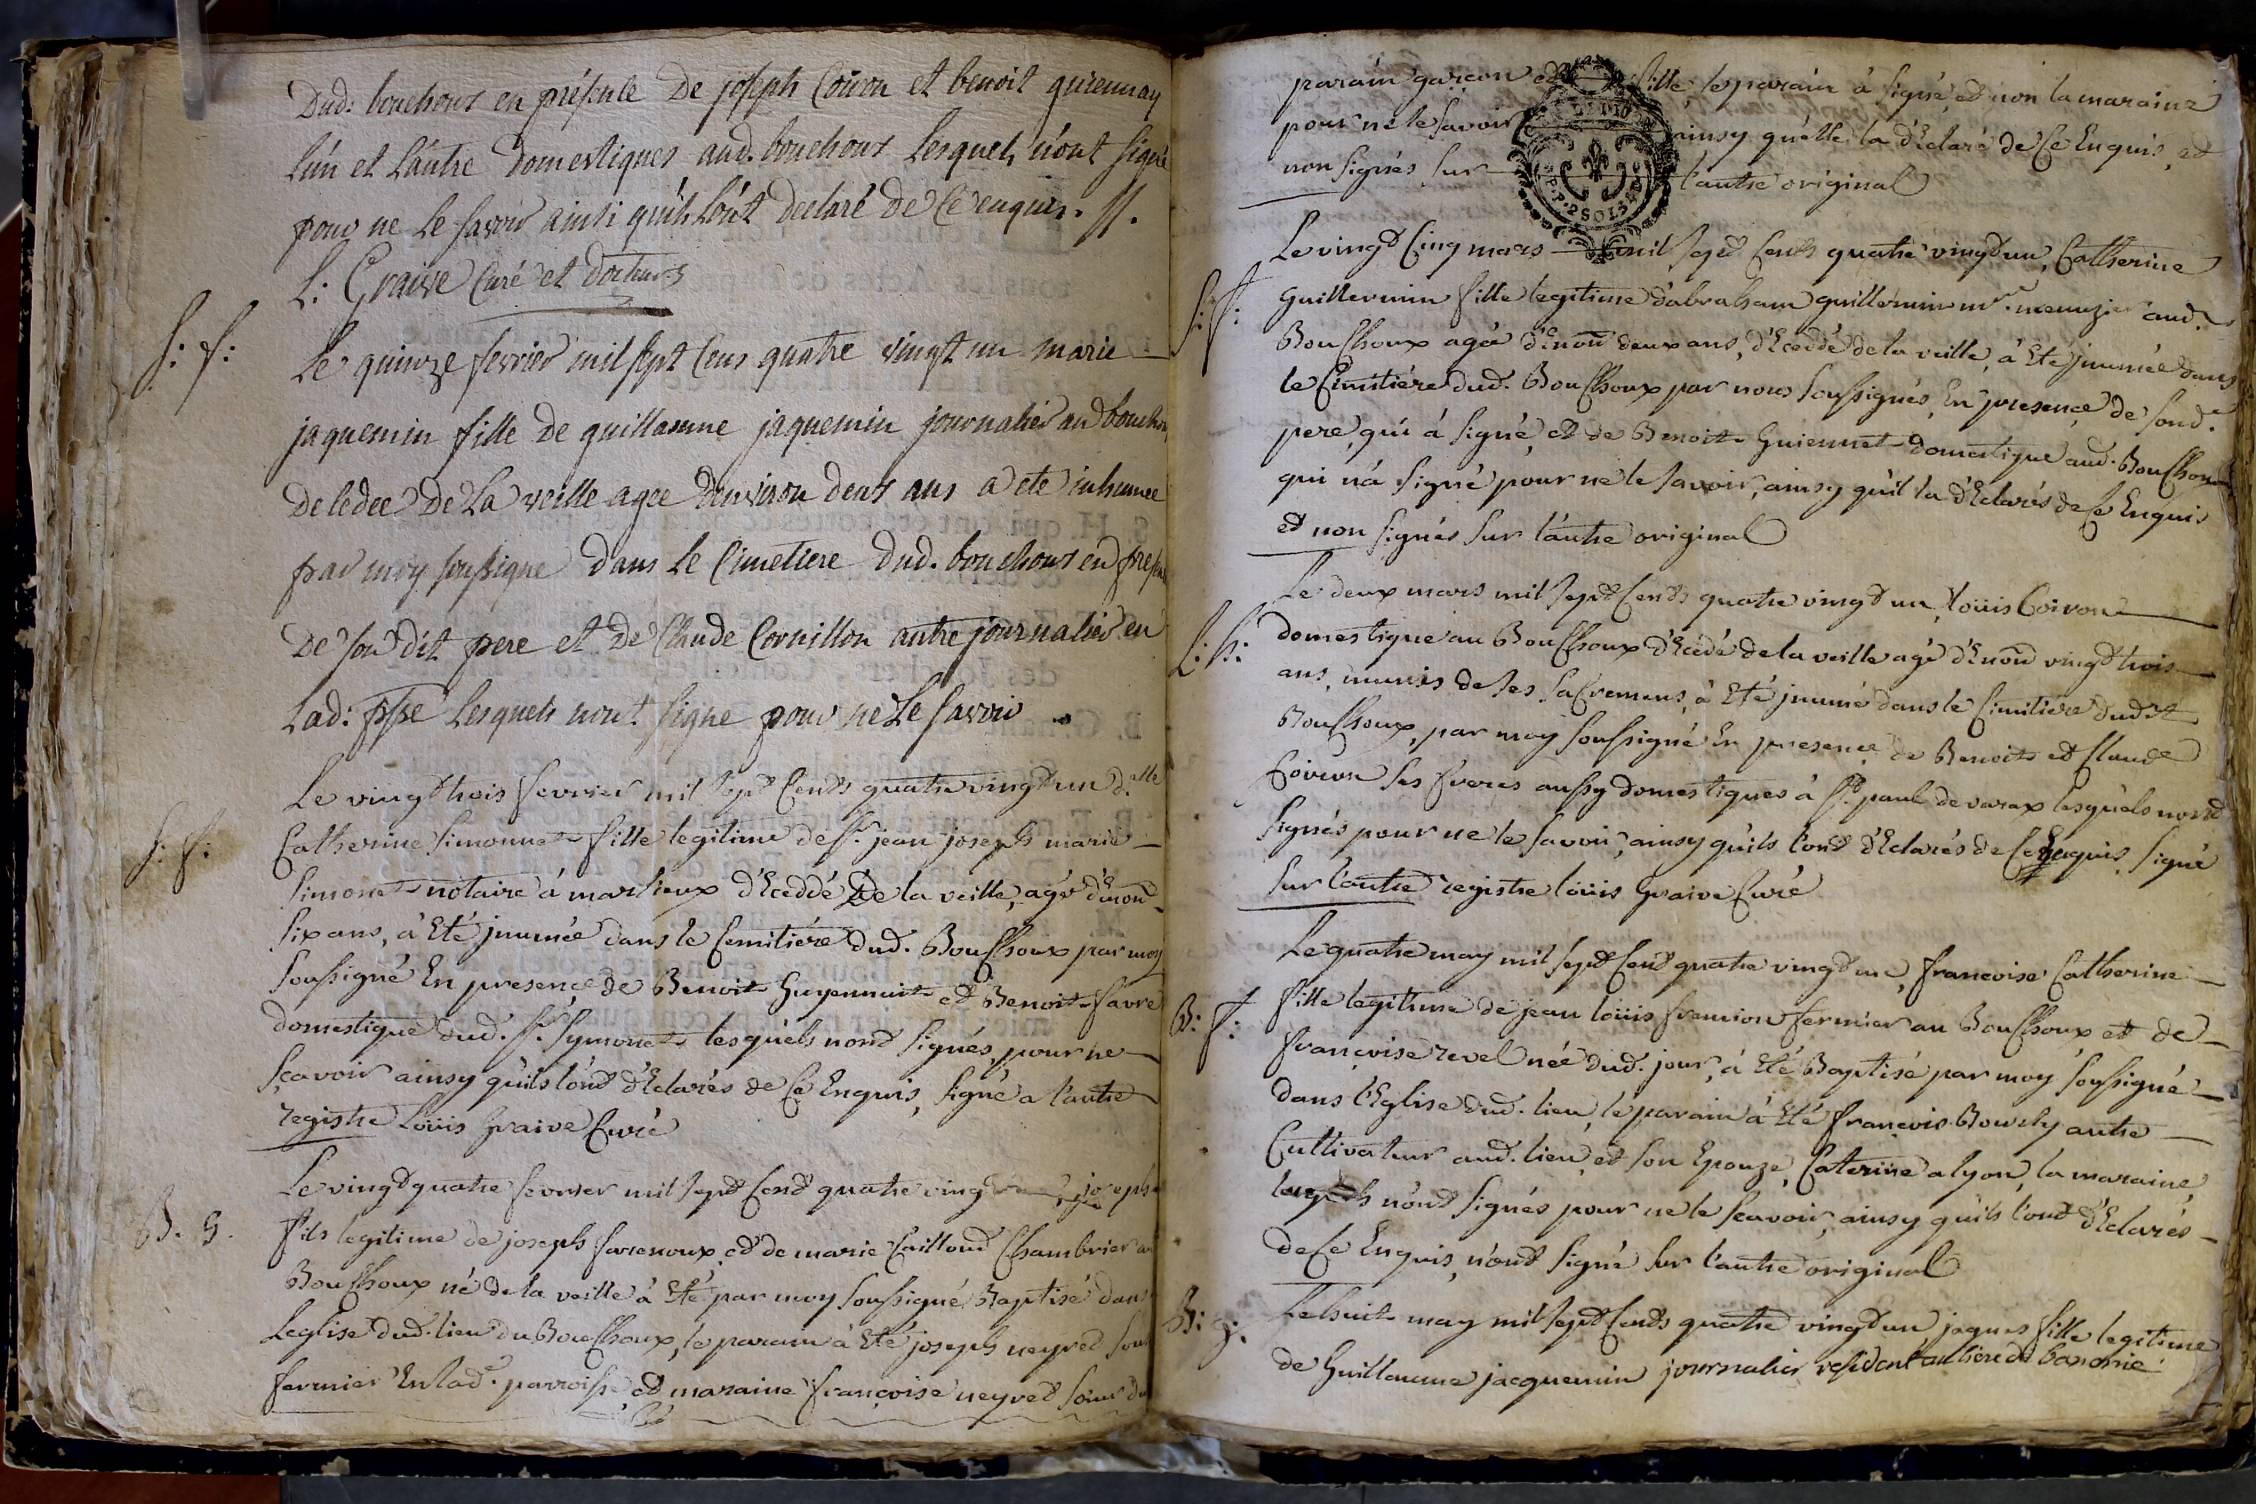 Dud. bouchoux en présence De joseph Coiron et benoit guiennay
l'un et L'autre Domestiques aud. bouchoux Lesquels n'ont signé
pour ne le savoir ainsi qu'ils L'ont declaré de Ce enquis. //.
L: Graive Curé et
S: f:
Le quinze fevrier mil sept Cens quatre vingt un marie
jaquemin fille De guillaume jaquemin journalier aud bouchou
decedee De La veille agee Denviron deux ans a ete inhumee
par moy soussigne Dans Le Cimetiere Dud. bouchoux en presen
De son dit pere et De Claude Cornillon autre journalier en
Lad: ppsse Lesquels n'ont signe pour ne Le savoir
S: f:
Le vingt trois fevrier mil sept Cents quatre vingt un d.elle
Catherine Simonnet fille legitime de Sr. jean joseph marie
Simonet notaire à marlieux d'Eceddé de la veille, agé d'Envon
six ans, à Eté jnumée dans le Cemitiére dud. Bouchoux par moy
soussigné En presence de Benoit Guyennait et Benoit favre
domestique dud. Sr. Symonet lesquels n'ont signés, pour ne
sçavoir ainsy quils l'ont d'Eclarés de Ce Enquis, signé a l'autre
registre Loüis Graive Curé
B. G.
Le vingt quatre fevrier mil sept Cent quatre vingt joseph
fils legitime de joseph favrenoux et de marie Cailloud Chambrier au
Bouchoux né de la veille à Eté par moy soussigné Baptisé dans
Leglise dud. lieu du Bouchoux, le parain à Eté joseph neyret sous
fermier En lad.e parroisse et maraine françoise neyret sœur du
parain garçon et fille, le parain à signé et non la maraine
pour ne le savoir ainsy qu'elle la d'Eclaré de Ce Enquis, et
non signés sur l'autre original
P.P. 2 SOLS
S: f:
Le vingt Cinq mars mil sept Cents quatre vingt un, Catherine
Guillermin fille legitime d'abraham guillermin mr. menuzier aud.
Bouchoux agée d'Envon deux ans, d'Eceddé de la veille, à Eté jnumée dans
le Cimitiére dud. Bouchoux par nous soussignés, En presence de sond.
pere, qui à signé, et de Benoit Guiennet domestique aud. Bouchoux
qui n'à signé pour ne le savoir, ainsy qu'il la d'Eclarés de Ce Enquis
et non signés sur l'autre original
S: h:
Le deux mars mil sept Cents quatre vingt un, loüis Coiron
domestique au Bouchoux d'Ecédé de la veille agé d'Envon vingt trois
ans, munis de ses sacremens, à Eté jnumé dans le Cimitiere dudt
Bouchoux, par moy soussigné En presence de Benoit et Claude
Coiron ses freres aussy domestiques à St. paul de varax lesquels n'ont
signés pour ne le savoir, ainsy quils l'ont d'Eclarés de Ce Enquis, signé
sur l'autre registre loüis Graive Curé
B: f:
Le quatre may mil sept Cent quatre vingt un, francoise Catherine
fille legitime de jean loüis fremion fermier au Bouchoux et de
françoise revel née dud. jour, à Eté Baptisé par moy soussigné
dans l'Eglise dud. lieu, le parain à Eté françois Bourly autre
Cultivateur aud. lieu, et son Epouze, Caterine alyon, la maraine
lesquels n'ont signés pour ne le sçavoir, ainsy quils l'ont d'Eclarés
de Ce Enquis, n'ont signé sur l'autre original
B: g:
Le huit may mil sept Cents quatre vingt un, jaques fille legitime
de Guillaume jacquemin journalier résident au baronie